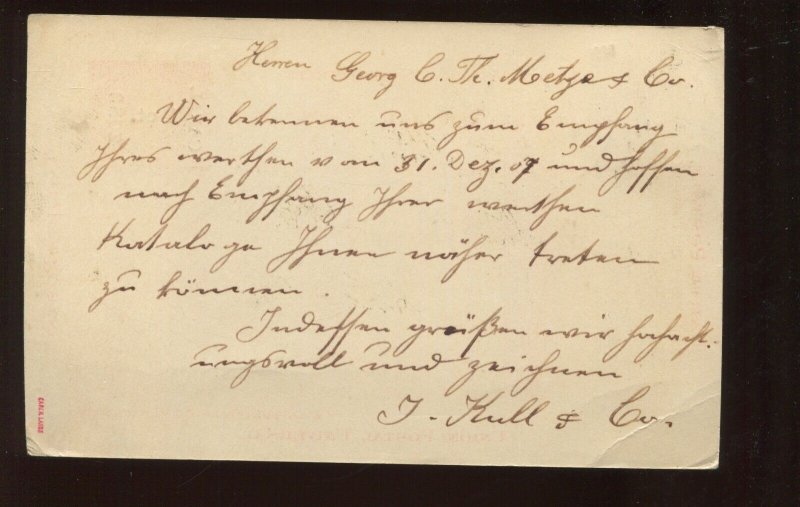 Herren Georg C. Th. Metze & Co.
Wir bekennen uns zum Empfang
Ihres werthen vom 31. Dez. 07 und hoffen
nach Empfang Ihrer werthen
Kataloge Ihnen näher treten
zu können.
Indessen grüßen wir hochacht-
ungsvoll und zeichnen
J. Kull & Co.